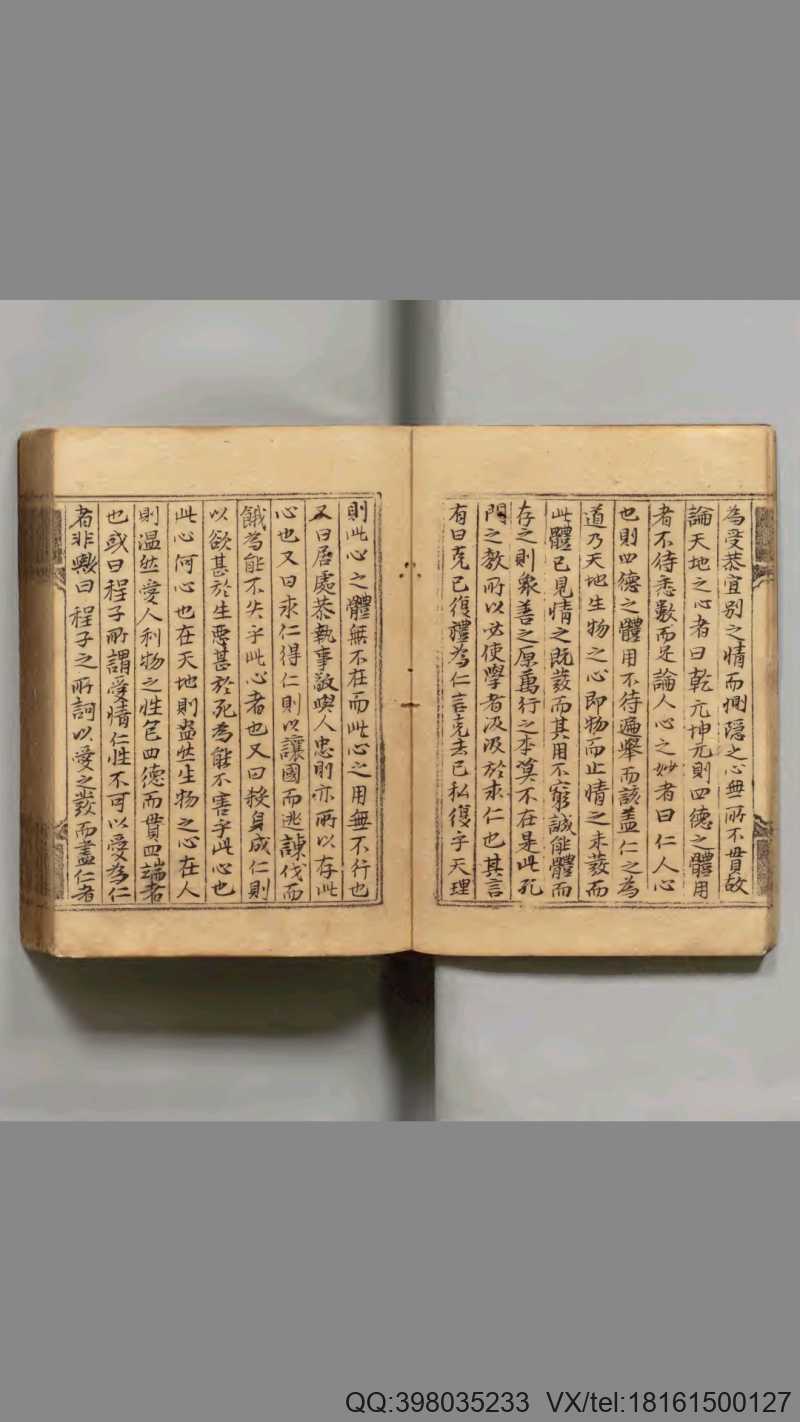 為愛恭宜别之情而惻隱之心無所不貫故
論天地之心者曰乾元坤元則四德之體用
者不待悉數而足論人心之妙者曰仁人心
也則四德之體用不待遍舉而該盖仁之為
道乃天地生物之心即物而止情之未發而
此體已見情之既發而其用不窮誠能體而
存之則衆善之原萬行之本莫不在是此孔
門之教所以必使學者汲汲於求仁也其言
有曰克已復禮為仁言克去已私復乎天理
則此心之體無不在而此心之用無不行也
又曰居處恭執事敬與人忠則亦所以存此
心也又曰求仁得仁則以讓國而逃諫伐而
餓為能不失乎此心者也又曰殺身成仁則
以欲甚於生惡甚於死為能不害乎此心也
此心何心也在天地則盎然生物之心在人
則温然愛人利物之性包四德而貫四端者
也或曰程子所謂愛情仁性不可以愛為仁
者非歟曰程子之所訶以愛之發而盡仁者
QQ:398035233 VX/tel:18161500127